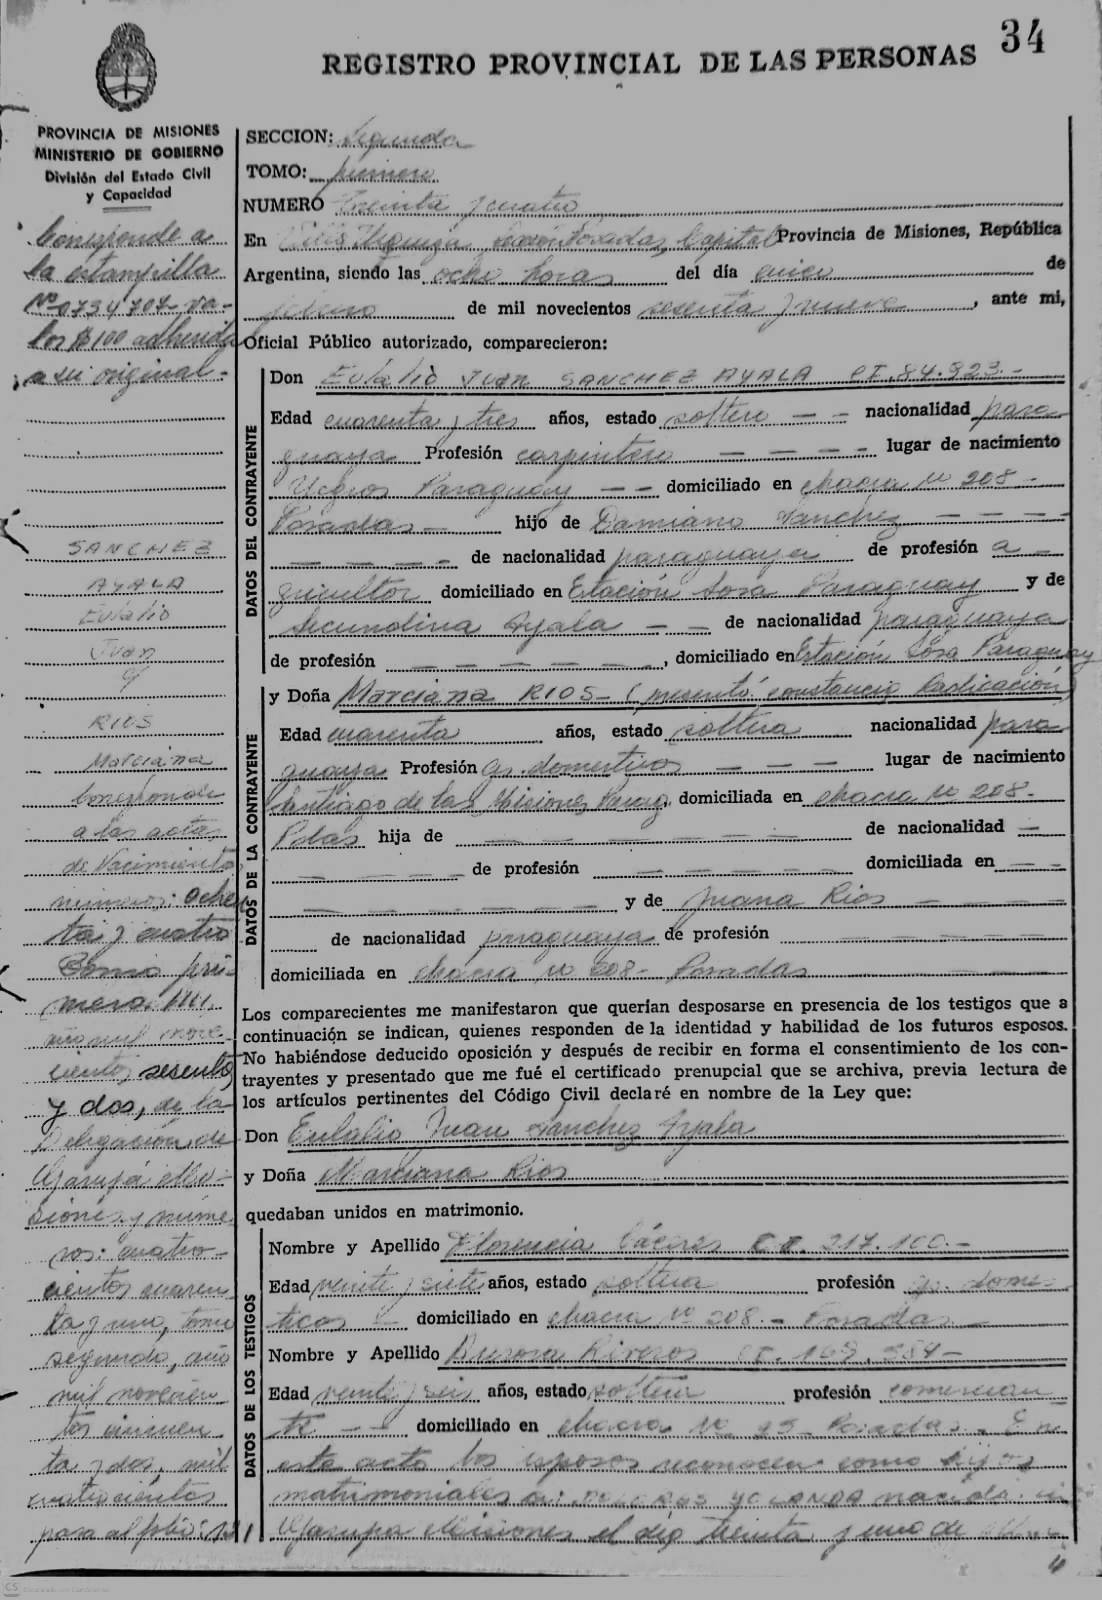 34
REGISTRO PROVINCIAL DE LAS PERSONAS
PROVINCIA DE MISIONES
MINISTERIO DE GOBIERNO
División del Estado Civil
y Capacidad
Corresponde a
la estampilla
Nº 0734707 - va-
lor $ 100 adherida
a su original.-
SANCHEZ
AYALA
Eulalio
Juan
c/
RIOS
Marciana
Corresponde
a las actas
de Nacimiento
números: ochen
ta y cuatro
Tomo pri-
mero
año mil nove-
cientos sesenta
y dos, de la
Delegación de
Garupá Mi-
siones y núme
ros: cuatro-
cientos cuaren
ta y uno, tomo
segundo, año
mil novecien
tos cincuen
ta y dos, mil
cuatrocientos
pasa al folio:
SECCION: Segunda
TOMO: primero
NUMERO Treinta y cuatro
En Villa Urquiza Posadas, Capital Provincia de Misiones, República
Argentina, siendo las ocho horas del día cinco de
febrero de mil novecientos sesenta y nueve, ante mi,
Oficial Público autorizado, comparecieron:
DATOS DEL CONTRAYENTE
Don Eulalio Juan SANCHEZ AYALA CI. 84.923.-
Edad cuarenta y tres años, estado soltero -- nacionalidad para
guaya Profesión carpintero ---- lugar de nacimiento
Yegros Paraguay -- domiciliado en chacra Nº 208 -
Posadas - hijo de Damiano Sanchez ----
---- de nacionalidad paraguaya de profesión a-
gricultor domiciliado en Estación Sosa Paraguay y de
Secundina Ayala --- de nacionalidad paraguaya
de profesión ------, domiciliado en Estación Sosa Paraguay
DATOS DE LA CONTRAYENTE
y Doña Marciana RIOS - (presentó constancia Radicación)
Edad cuarenta años, estado soltera nacionalidad para
guaya Profesión qs. domésticos ---- lugar de nacimiento
Santiago de las Misiones Parag. domiciliada en chacra Nº 208.-
Pdas hija de ------ de nacionalidad -
----- de profesión ----- domiciliada en --
------ y de Juana Rios ----
de nacionalidad paraguaya de profesión ----
domiciliada en chacra Nº 208 - Posadas ---
Los comparecientes me manifestaron que querían desposarse en presencia de los testigos que a
continuación se indican, quienes responden de la identidad y habilidad de los futuros esposos.
No habiéndose deducido oposición y después de recibir en forma el consentimiento de los con-
trayentes y presentado que me fué el certificado prenupcial que se archiva, previa lectura de
los artículos pertinentes del Código Civil declaré en nombre de la Ley que:
Don Eulalio Juan Sanchez Ayala
y Doña Marciana Rios
quedaban unidos en matrimonio.
DATOS DE LOS TESTIGOS
Nombre y Apellido Florencia Cáceres C.I. 217.100.-
Edad veinte y siete años, estado soltera profesión qs. domé-
sticos - domiciliado en chacra Nº 208.- Posadas -
Nombre y Apellido Aurora Riveros CI. 169.984-
Edad veinte y seis años, estado soltera profesión comercian
te -- domiciliado en chacra Nº 23 - Posadas. En
este acto los esposos reconocen como hijos
matrimoniales a: DOLORES YOLANDA nacida en
Garupá Misiones el día treinta y uno de